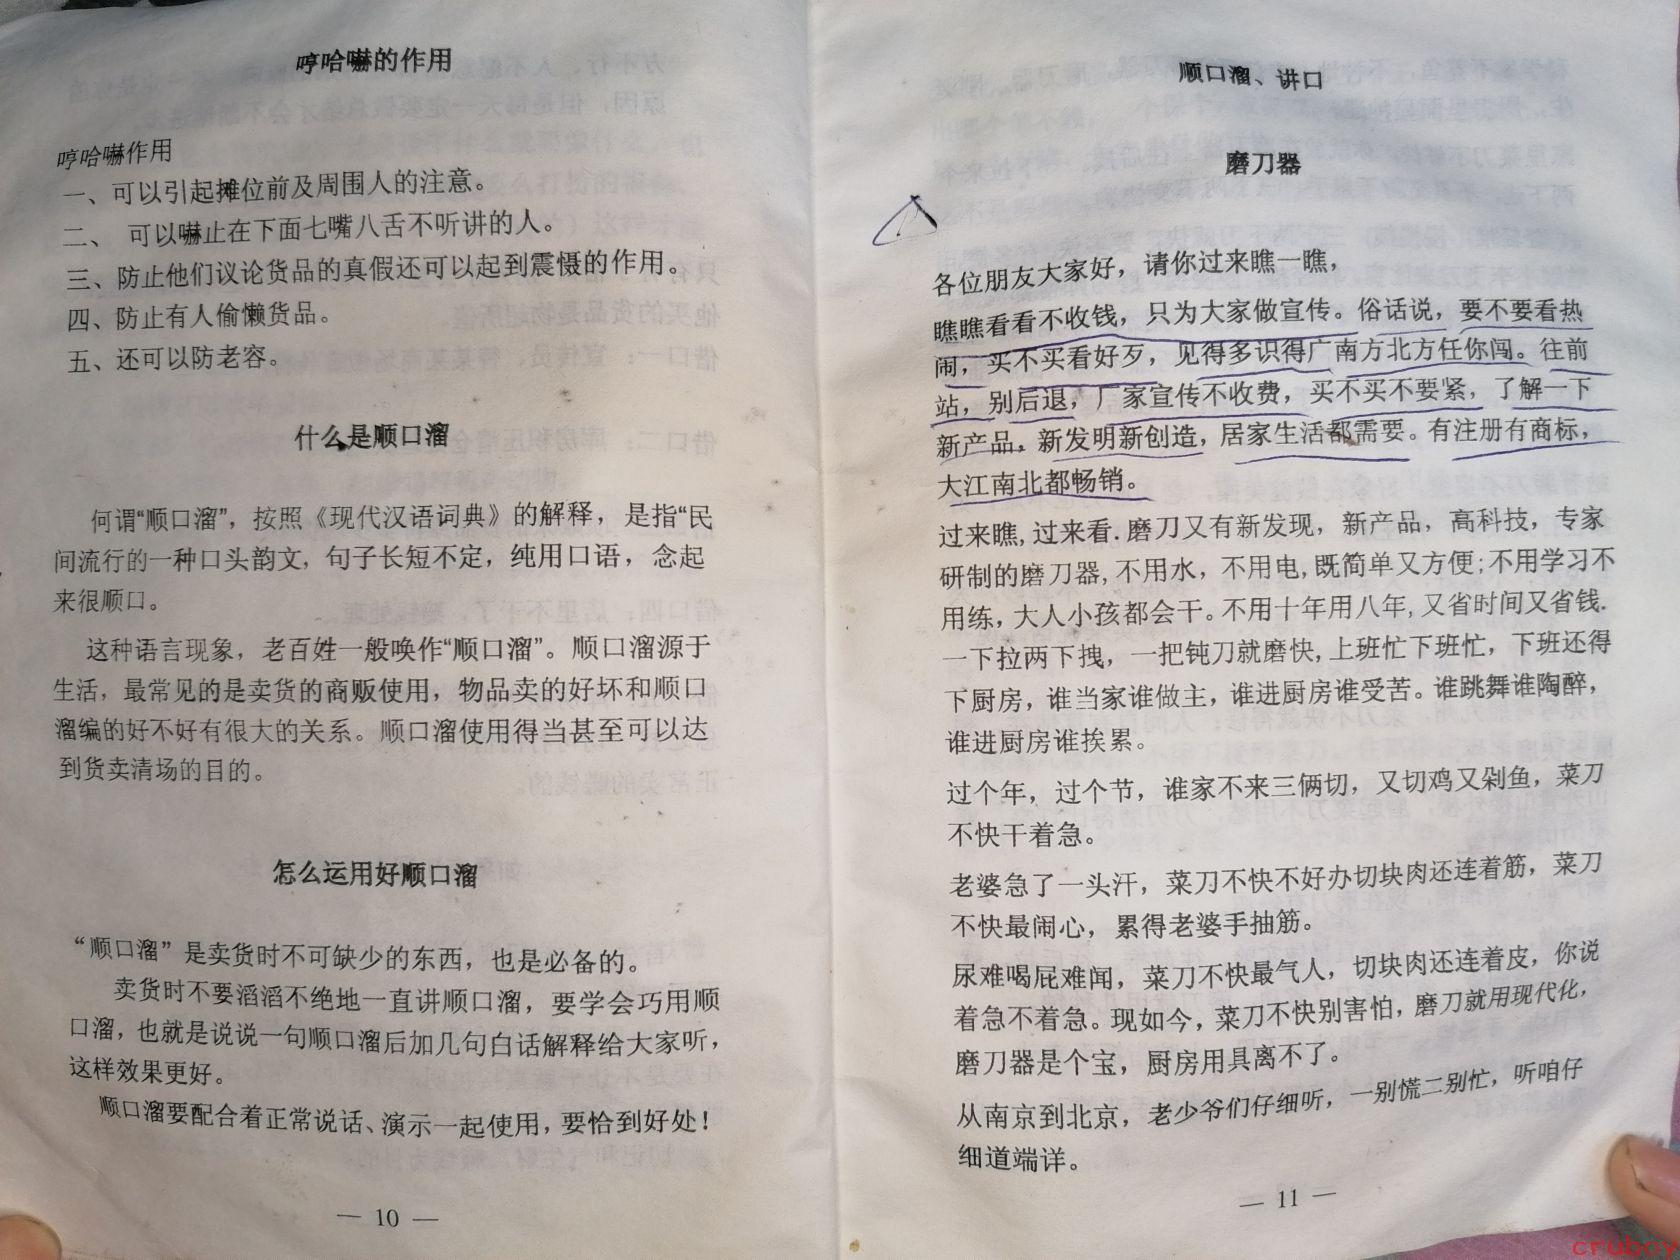 哼哈嚇的作用
哼哈嚇作用
一、可以引起摊位前及周围人的注意。
二、 可以嚇止在下面七嘴八舌不听讲的人。
三、防止他们议论货品的真假还可以起到震慑的作用。
四、防止有人偷懒货品。
五、还可以防老容。
什么是顺口溜
何谓“顺口溜”，按照《现代汉语词典》的解释，是指“民
间流行的一种口头韵文，句子长短不定，纯用口语，念起
来很顺口。
这种语言现象，老百姓一般唤作“顺口溜”。顺口溜源于
生活，最常见的是卖货的商贩使用，物品卖的好坏和顺口
溜编的好不好有很大的关系。顺口溜使用得当甚至可以达
到货卖清场的目的。
怎么运用好顺口溜
“顺口溜”是卖货时不可缺少的东西，也是必备的。
卖货时不要滔滔不绝地一直讲顺口溜，要学会巧用顺
口溜，也就是说说一句顺口溜后加几句白话解释给大家听，
这样效果更好。
顺口溜要配合着正常说话、演示一起使用，要恰到好处！
— 10 —
顺口溜、讲口
磨刀器
各位朋友大家好，请你过来瞧一瞧，
瞧瞧看看不收钱，只为大家做宣传。俗话说，要不要看热
闹，买不买看好歹，见得多识得广南方北方任你闯。往前
站，别后退，厂家宣传不收费，买不买不要紧，了解一下
新产品，新发明新创造，居家生活都需要。有注册有商标，
大江南北都畅销。
过来瞧,过来看.磨刀又有新发现，新产品，高科技，专家
研制的磨刀器,不用水，不用电,既简单又方便;不用学习不
用练，大人小孩都会干。不用十年用八年,又省时间又省钱.
一下拉两下拽，一把钝刀就磨快,上班忙下班忙，下班还得
下厨房，谁当家谁做主，谁进厨房谁受苦。谁跳舞谁陶醉，
谁进厨房谁挨累。
过个年，过个节，谁家不来三俩切，又切鸡又剁鱼，菜刀
不快干着急。
老婆急了一头汗，菜刀不快不好办切块肉还连着筋，菜刀
不快最闹心，累得老婆手抽筋。
尿难喝屁难闻，菜刀不快最气人，切块肉还连着皮，你说
着急不着急。现如今，菜刀不快别害怕，磨刀就用现代化，
磨刀器是个宝，厨房用具离不了。
从南京到北京，老少爷们仔细听，一别慌二别忙，听咱仔
细道端详。
— 11 —
cruboy